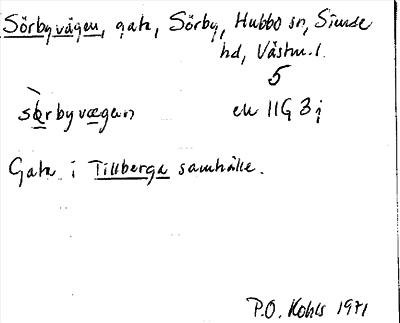 Sörbyvägen, gata, Sörby, Hubbo sn, Siende
hd, Västm. l.
5
sörbyvægen ek 11G 3i
Gata i Tillberga samhälle.
P.O. Kohls 1971